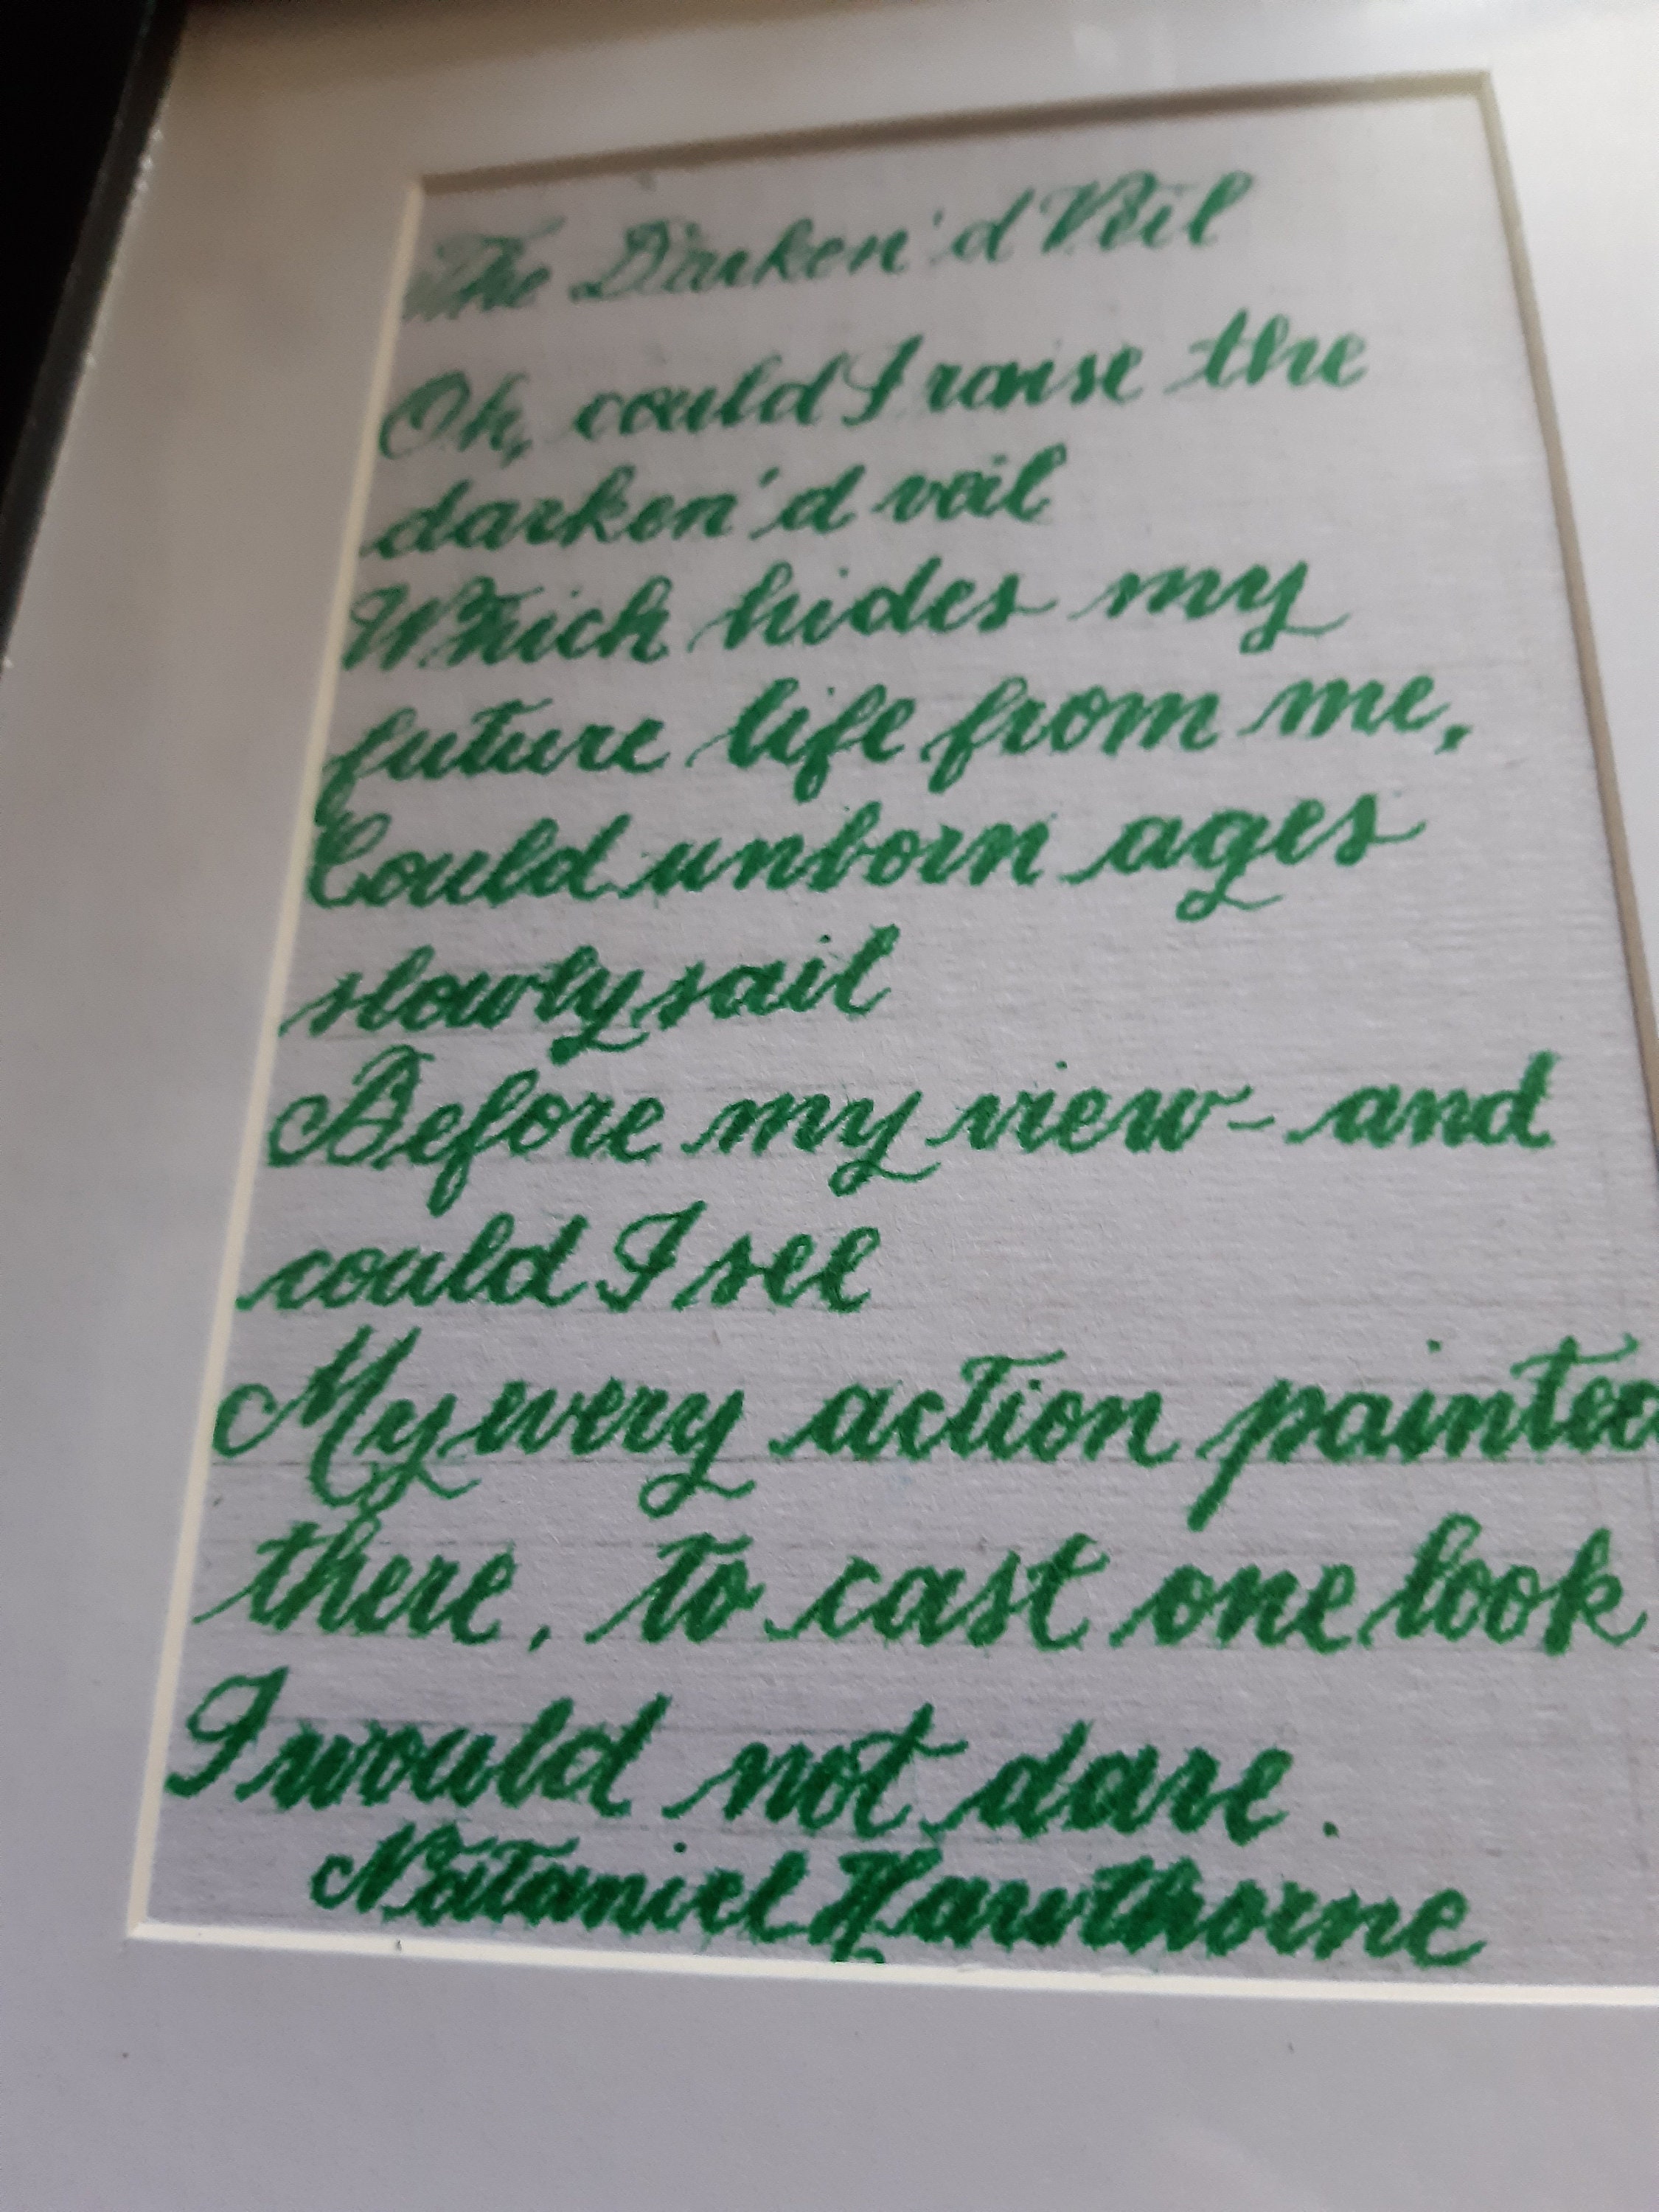 The Darken'd Veil
Oh, could I raise the
darken'd veil
Which hides my
future life from me,
Could unborn ages
slowly sail
Before my view - and
could I see
My every action painted
there, to cast one look
I would not dare.
Nataniel Hawthorne